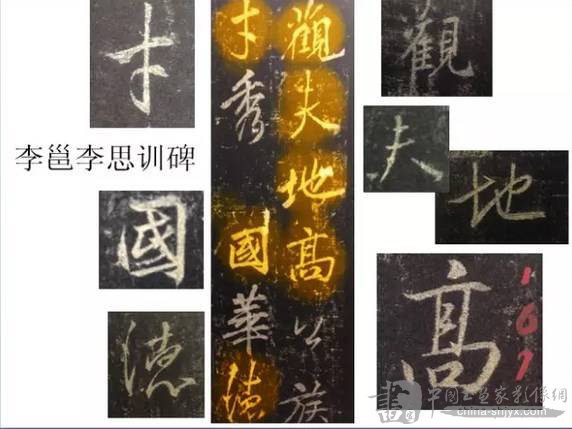 才
李邕李思训碑
國
德
觀夫地高公族
才秀國華德
觀
夫
地
高
中国书画家影像網
china-shjyx.com